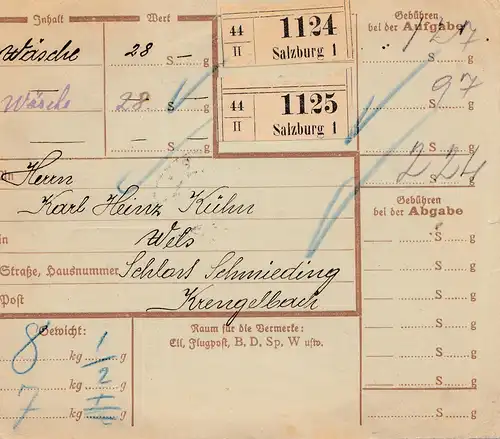 Inhalt Wert
Wäsche 28 S — g
Wäsche 28. S — g
— S — g
44 1124
II Salzburg 1
44 1125
II Salzburg 1
Gebühren
bei der Aufgabe
1 27
S g
97
S g
2 24
S g
Herrn
Karl Heinz Kühn
in Wels
Straße, Hausnummer Schloss Schmieding
Post Krengelbach
Gebühren
bei der Abgabe
S g
S g
S g
S g
S g
S g
S g
Gewicht:
8 kg 1/2 g
kg g
7 kg g
Raum für die Vermerke:
Eil, Flugpost, B. D. Sp. W usw.